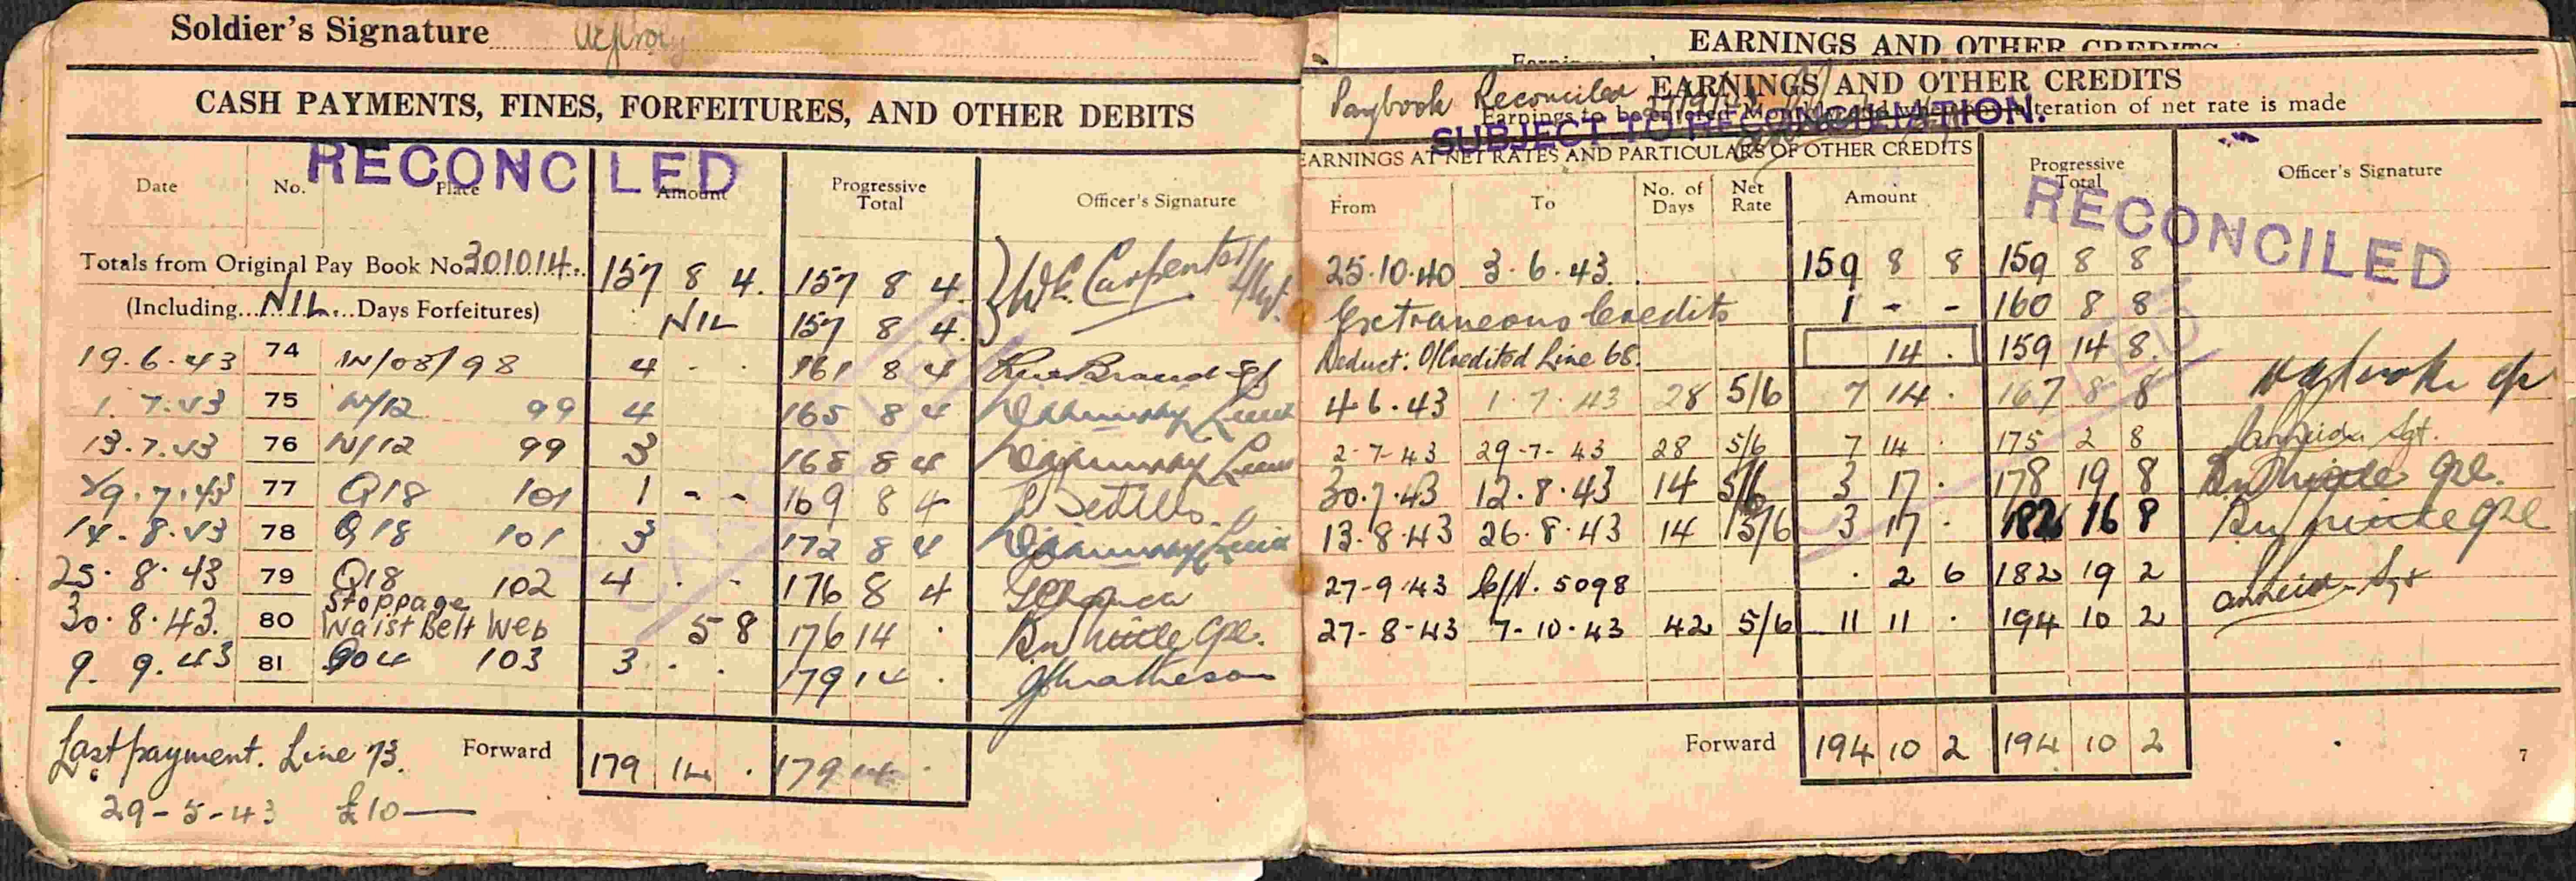 Soldier's Signature
CASH PAYMENTS, FINES, FORFEITURES, AND OTHER DEBITS
RECONCILED
Date No. Place Amount Progressive Total Officer's Signature
Totals from Original Pay Book No. 301014. 157 8 4. 157 8 4.
(Including... NIL ...Days Forfeitures) NIL 157 8 4.
19.6.43 74 IN/03/98 4 . . 161 8 4
1.7.43 75 N/12 99 4 165 8 4
13.7.43 76 N/12 99 3 168 8 4
29.7.43 77 Q18 101 1 - - 169 8 4
14.8.43 78 Q18 101 3 172 8 4
25.8.43 79 Q18 102 4 . - 176 8 4
30.8.43. 80 Stoppage Waist Belt Web 5 8 176 14 .
9.9.43 81 904 103 3 . . 179 14 . Matheson
Last payment. Line 73. Forward 179 14 . 179 14 .
29-5-43 £10—
EARNINGS AND OTHER CREDITS
EARNINGS AND OTHER CREDITS
Paybook Reconciled
Earnings to be entered alteration of net rate is made
SUBJECT TO RECONCILIATION.
EARNINGS AT NET RATES AND PARTICULARS OF OTHER CREDITS
From To No. of Days Net Rate Amount Progressive Total Officer's Signature
RECONCILED
25.10.40 3.6.43. 159 8 8 159 8 8
Extraneous Credits 1 - - 160 8 8
Deduct: O/Credited Line 68. 14 . 159 14 8.
4.6.43 1.7.43 28 5/6 7 14 . 167 8 8
2-7-43 29-7-43 28 5/6 7 14 . 175 2 8 Sgt.
30.7.43 12.8.43 14 5/6 3 17 . 178 19 8 Cpl.
13.8.43 26.8.43 14 5/6 3 17 . 182 16 8 Cpl
27-9-43 C/N. 5098 . 2 6 182 19 2 Sgt
27-8-43 7-10-43 42 5/6 11 11 . 194 10 2
Forward 194 10 2 194 10 2
7